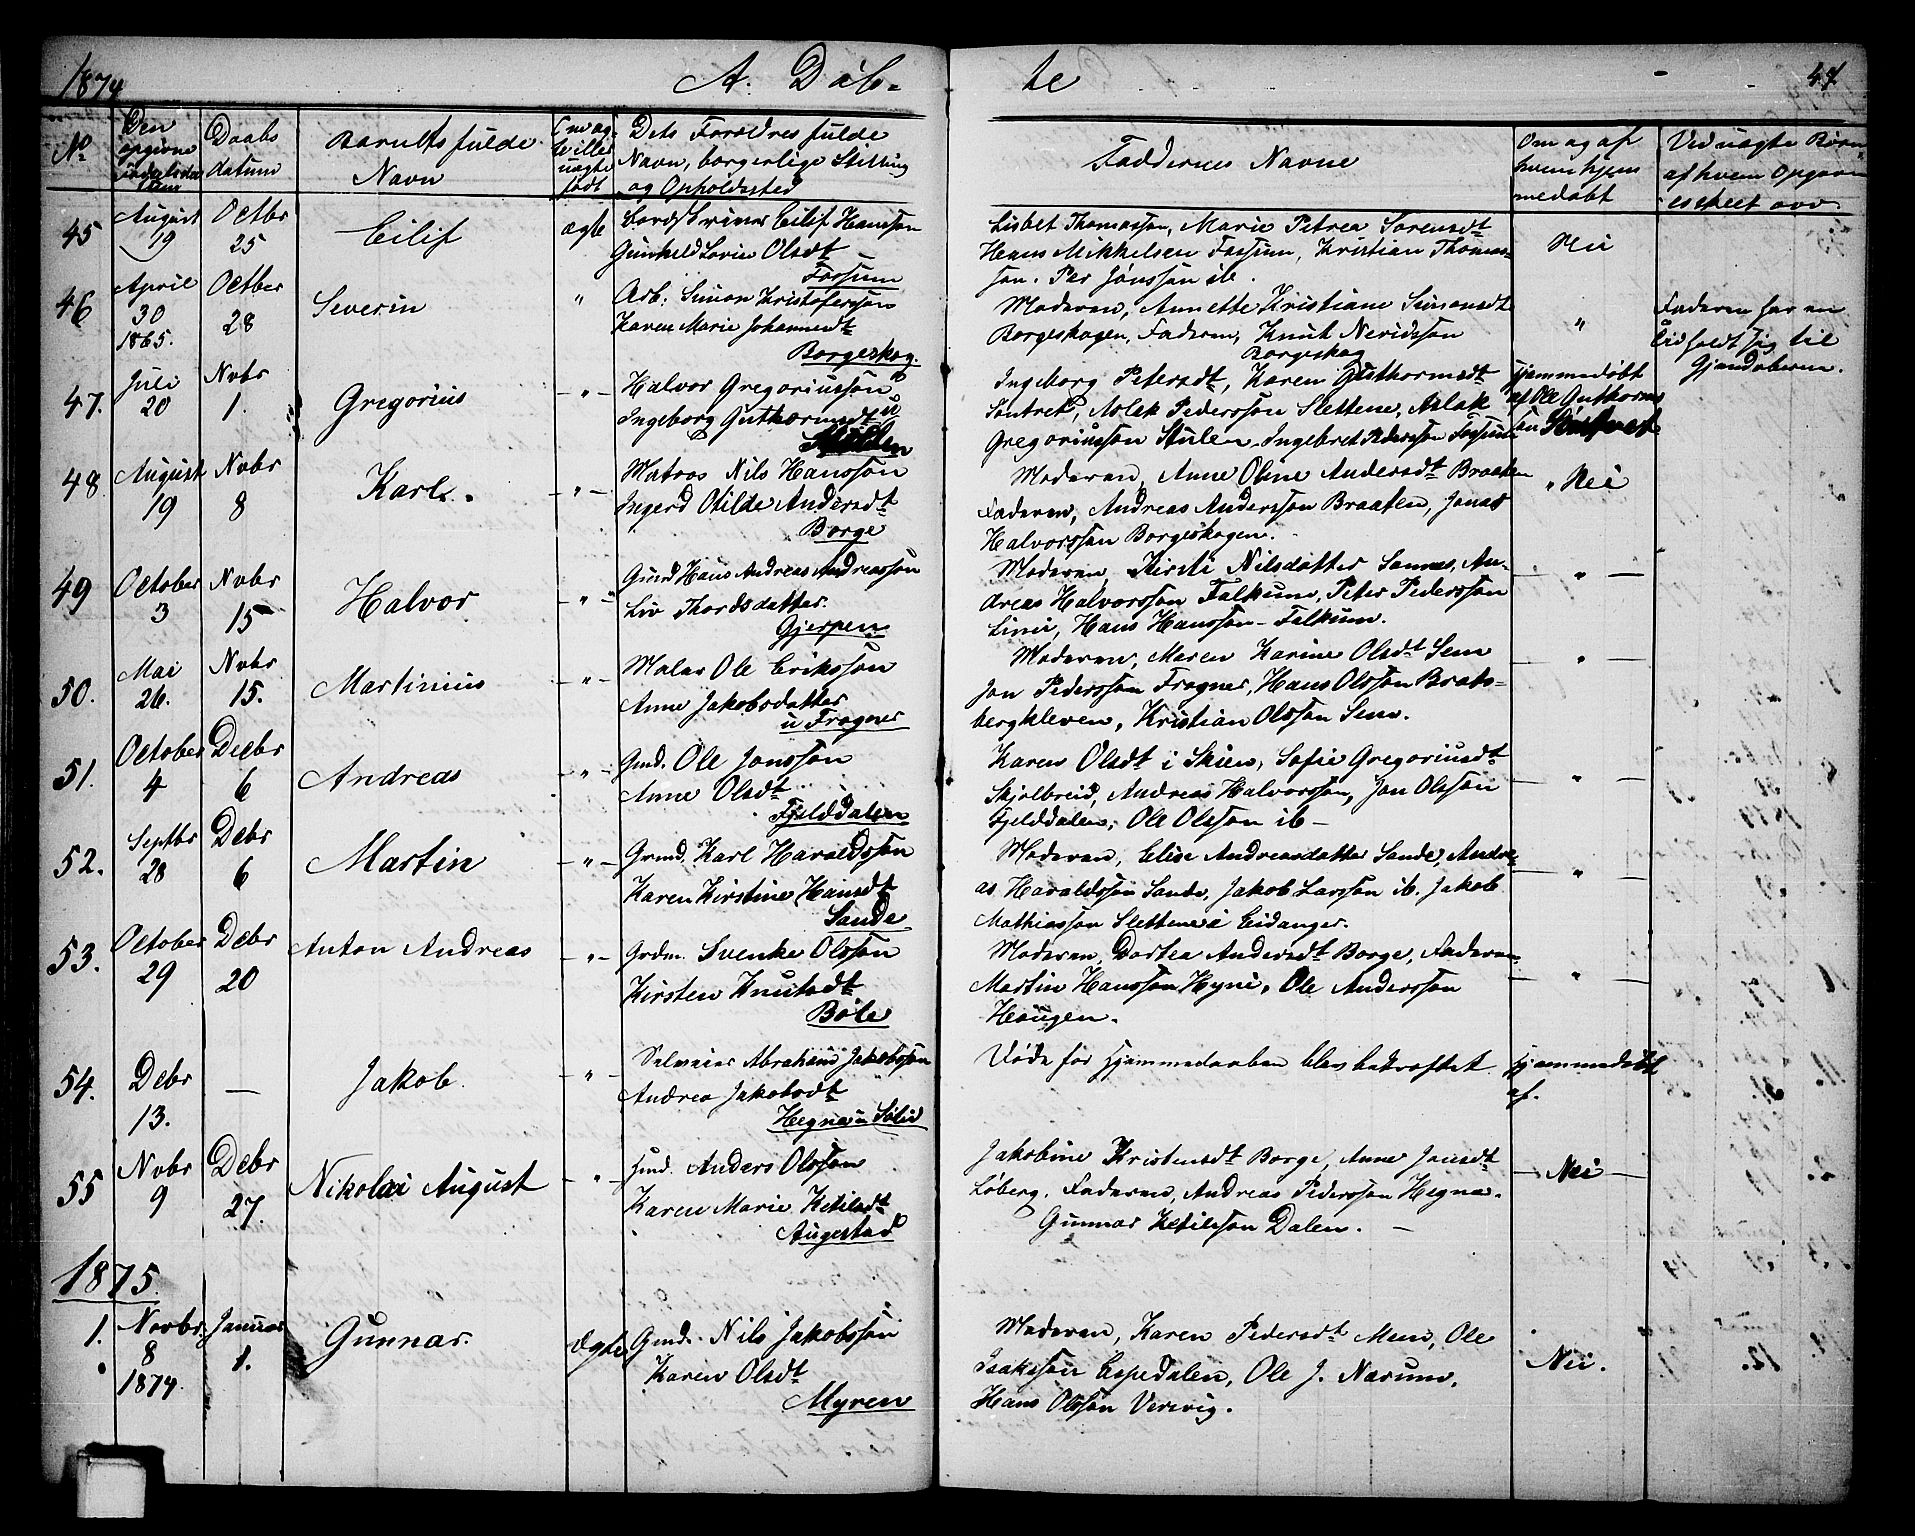 1874 A. Døb- te 47
No
Den opgivne Fødselsdatum
Daabs datum
Barnets fulde Navn
Om ægte eller uægte født
Dets Forældres fulde Navn, borgerlige Stilling og Opholdssted
Faddernes Navne
Om og af hvem hjemmedøbt
Ved uægte Børn af hvem Opgaven er skeet
45 August 19 Octbr 25 Eilif ægte
Eilif Hansson
Gunhild Sevrine Olsdt
Fossum
Lisbet Thomassøn, Marie Petrea Sørensdt
Hans Mikkelsen Fossum, Kristian Thomas-
søn. Per Jønssøn ib.
Nei
46 April 30 1865. Octber 28 Severin "
Arb: Simon Kristofersøn
Karen Marie Johannesdt
Borgeskog.
Moderen, Annette Kristiane Simonsdt
Borgeskogen, Faderen, Knut Neridssøn
Borgeskog
"
Faderen har en
Tid holdt sig til
Gjendøberne.
47. Juli 20 Nvbr 1. Gregorius - " -
Halvor Gregoriussøn
Ingeborg Guthormsdt
Ingeborg Petersdt, Karen Guthormsdt
Aslak Pederssøn Slettene, Aslak
Gregoriussøn Stulen. Ingebret Pederssøn Fossum
Hjemmedøbt
af Ole Guthorms
søn
48 August 19 Nvbr 8 Karl. - " -
Matros Nils Hanssøn
Ingerd Otilde Andersdt
Borge
Moderen, Anne Oline Andersdt Braaten
Faderen, Andreas Anderssøn Braaten, Jonas
Halvorssøn Borgeskogen.
" Nei
49 October 3 Nvbr 15 Halvor - " -
Gmd Hans Andreas Andreassøn
Liv Thordsdatter.
Gjerpen.
Moderen, Kirsti Nilsdatter Sannes, An-
dreas Halvorssøn Falkum, Peter Pederssøn
Linie, Hans Hanssøn - Falkum.
— " —
50. Mai 26. Nvbr 15. Martinius - " -
Maler Ole Erikssøn
Anne Jakobsdatter
u Frogner
Moderen, Maren Karine Olsdt Sem
Jon Pederssøn Frogner, Hans Olssøn Brats-
bergkleven, Kristian Olssøn Sem.
— " —
51. October 4 Decbr 6 Andreas - " -
Gmd. Ole Jonssøn
Anne Olsdt
Fjelddalen
Karen Olsdt i Skien, Sofie Gregoriusdt
Skjelbreid, Andreas Halvorssøn, Jon Olssøn
Fjelddalen, Ole Olssøn ib -
— " —
52. Septbr 28 Debr 6 Martin - " -
Grmd. Karl Haraldssøn
Karen Kirstine Hansdt
Sande
Moderen, Elise Andreasdatter Sande, Andre-
as Haraldssøn Sande, Jakob Larssøn ib. Jakob
Mathiassøn Slettene i Eidanger.
— " —
53. October 29 Debr 20 Anton Andreas - " -
Grdm. Svenke Olssøn
Kirsten Knutsdt
Bøle
Moderen, Dortea Andersdt Borge, Faderen
Martin Hanssøn Hyni, Ole Anderssøn
Haugen.
— " —
54. Debr 13. — Jakob. - " -
Selveier Abraham Jakobssøn
Andrea Jakobsdt
Hegna u Sølid
Døde før Hjemmedaaben blev bekræftet
Hjemmedøbt
af.
55 Nvbr 9 Debr 27. Nikolai August - " -
Gmd. Anders Olssøn
Karen Marie Ketilsdt
Augestad
Jakobine Kristensdt Borge, Anne Jansdt
Løberg. Faderen, Andreas Pederssøn Hegna.
Gunnar Ketilssøn Dalen. —
— Nei —
1875.
1. Novbr 8 1874. Januar 1. Gunnar. Ægte
Gmd. Nils Jakobssøn
Karen Olsdt
Myren
Moderen, Karen Pedersdt Mem, Ole
Isakssøn Espedalen, Ole J. Nærum,
Hans Olssøn Versvig.
Nei.